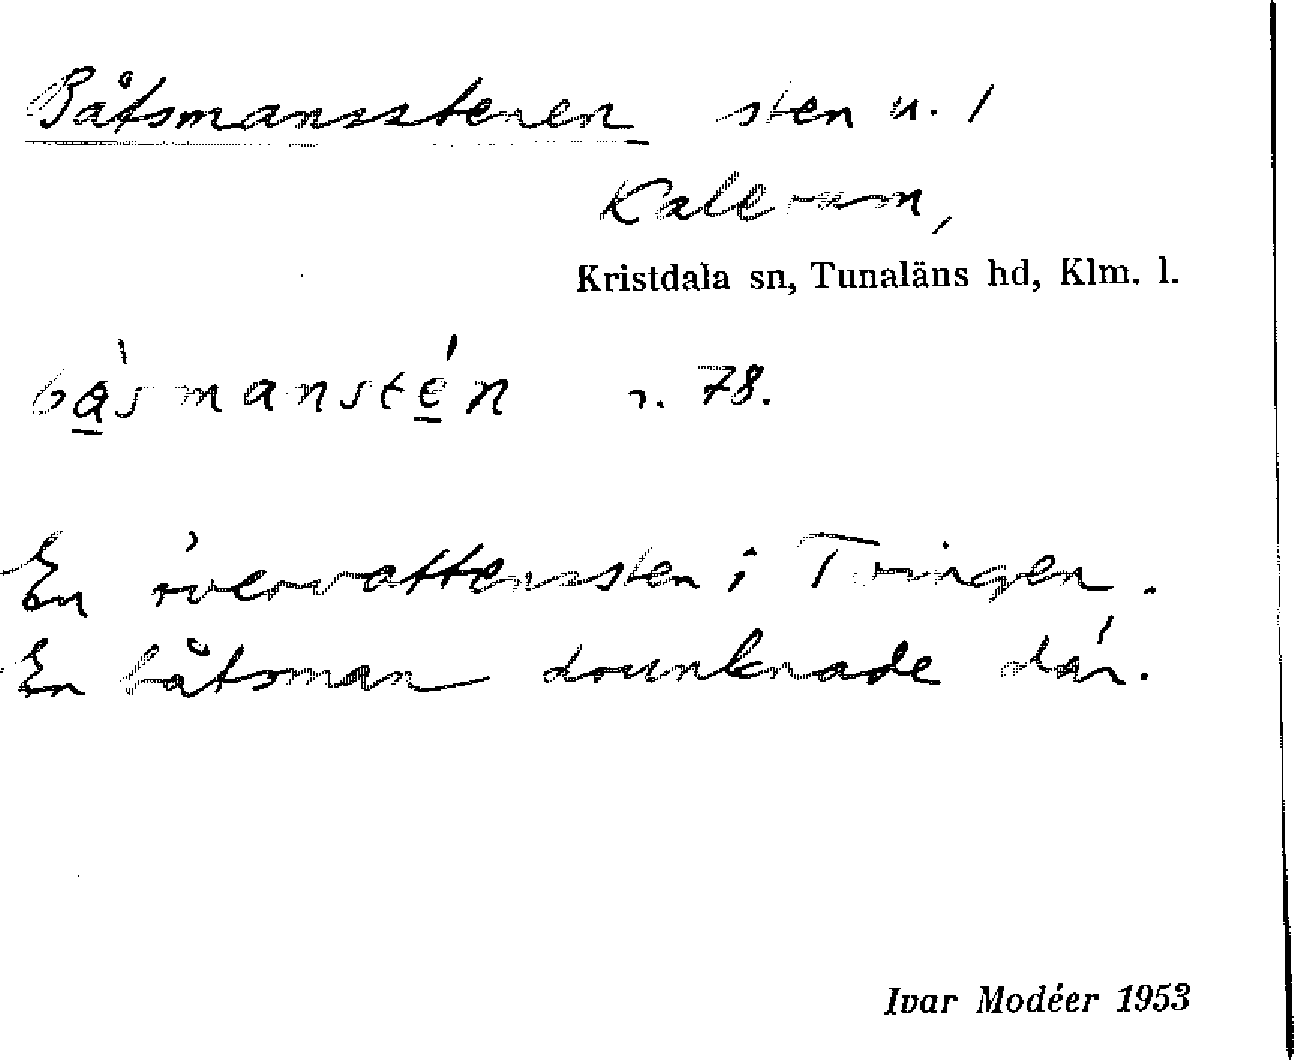 Båtsmansstenen sten u. 1
Kallerum,
Kristdala sn, Tunaläns hd, Klm. l.
bàsmansté̱n r. 78.
En övervattenssten i Tvingen.
En båtsman drunknade där.
Ivar Modéer 1953